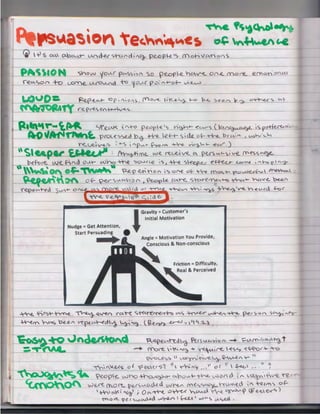 The Psychology
of Influence
Persuasion Techniques
It's all about understanding people's motivations
PASSION Show your passion so people have one more emotional
reason to come around to your point of view
LOUD = Repeat opinions, more likely to be seen by others as
MAJORITY representatives
RIGHT-EAR Speak into people's right ears (language is preferentially
ADVANTAGE processed by the left side of the brain, which
receives its input from the right ear)
"Sleeper Effect" Anytime we receive a persuasive message
before we find out who the source is, the sleeper effect come into play
"Illusion of Truth" Repetition is one of the most powerful method
Repetition of persuasion, People rate statements that have been
repeated just once as more valid or true than things they've heard for
The Persuasion Slide
Gravity = Customer's
Initial Motivation
Nudge = Get Attention,
Start Persuading
Angle = Motivation You Provide,
Conscious & Non-conscious
Friction = Difficulty,
Real & Perceived
the first time. They even rate statements as truer when the person saying
them has been repeatedly lying (Begg et al, 1992)
Easy to Understand Repeatedly Persuasion → Familiarity
= True → more liking → require less effort to
process "cognitively fluent"
Thinkers or feelers? "I think..." or "I feel..."
Thoughts & People who thought about the world in cognitive terms
Emotion were more persuaded when message framed in terms of
"thinking"; On the other hand the group (feelers)
more persuaded when I feel was used.